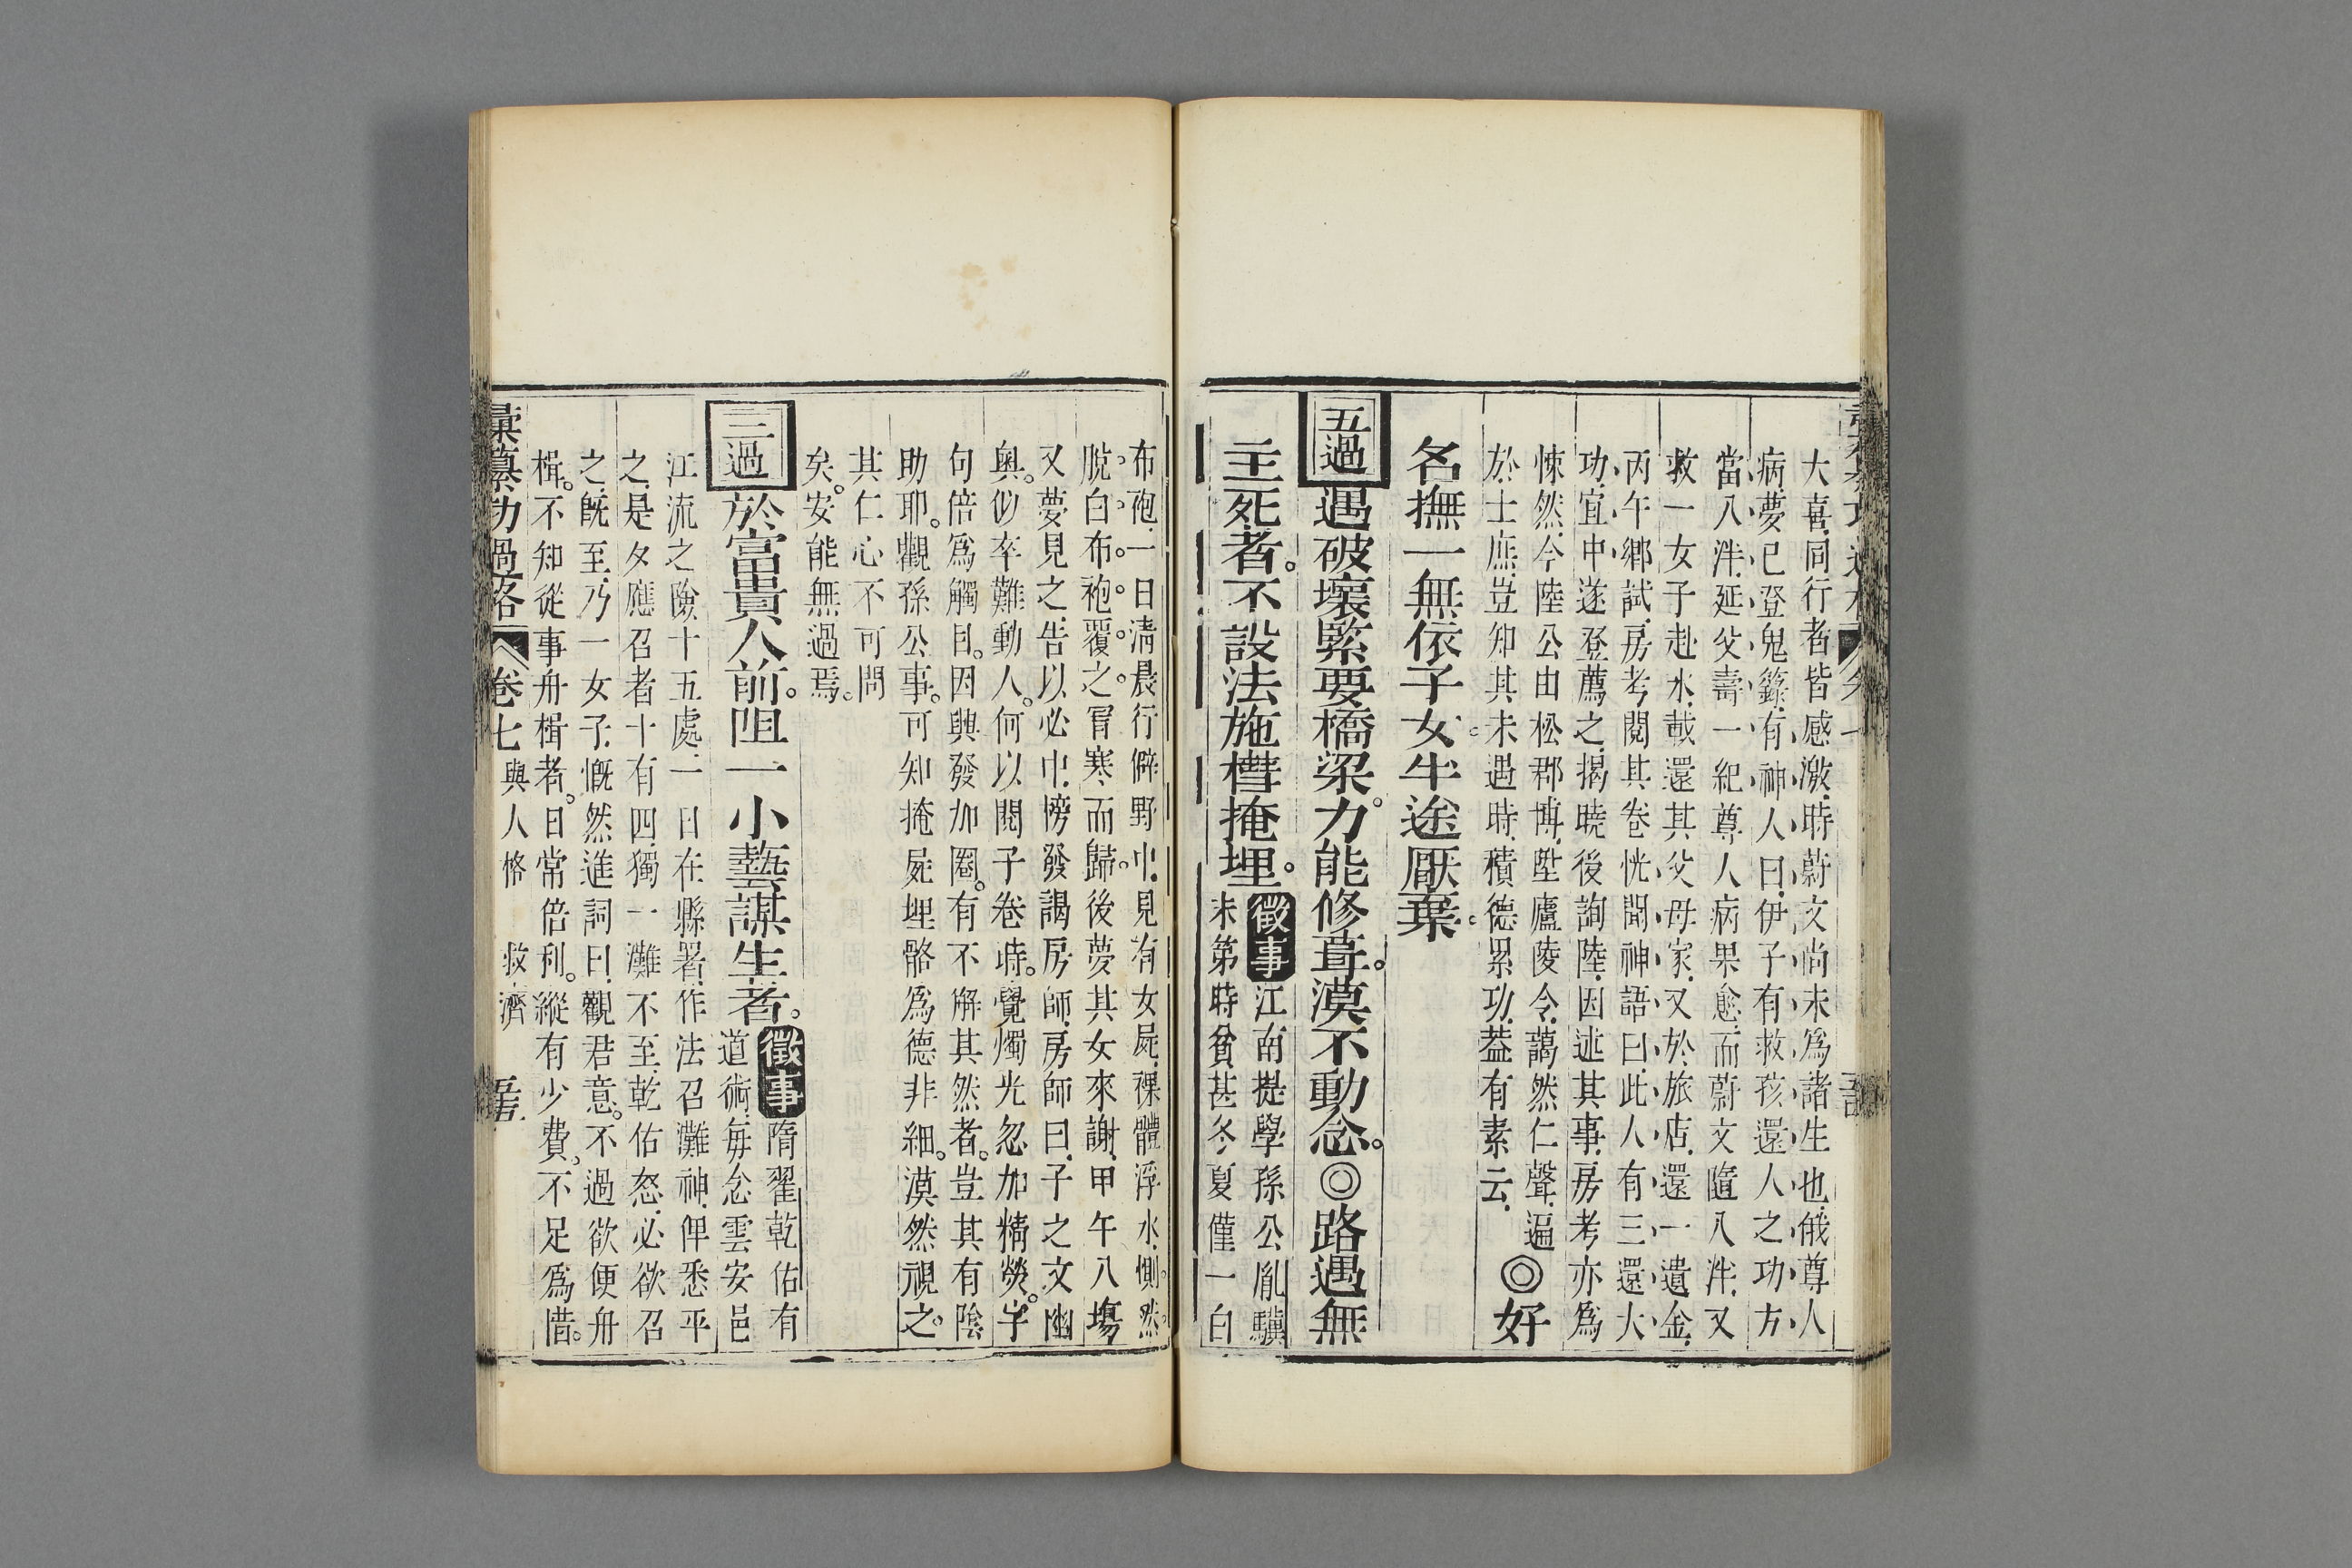 大喜同行者皆感激時蔚文尚未爲諸生也俄尊人
病夢已登鬼籙有神人曰伊子有救孩還人之功方
當入泮延父壽一紀尊人病果愈而蔚文隨入泮又
救一女子赴水載還其父母家又於旅店還一遺金
丙午鄉試房考閱其卷恍聞神語曰此人有三還大
功宜中遂登薦之揭曉後詢陸因述其事房考亦爲
悚然今陸公由松郡博陞廬陵令藹然仁聲遍
於士庶豈知其未遇時積德累功葢有素云◎好
名撫一無依子女半途厭棄。
五過遇破壞緊要橋梁。力能修葺。漠不動念。◎路遇無
主死者。不設法施槥掩埋。徵事江南提學孫公胤驥
未第時貧甚冬夏僅一白
布袍一日清晨行僻野中見有女屍裸體浮水惻然。
脫白布袍覆之。冐寒而歸。後夢其女來謝甲午入塲
又夢見之告以必中榜發謁房師房師曰子之文幽
奧。似卒難動人。何以閱子卷時。覺燭光忽加精熒。字
句倍爲觸目。因興發加圈。有不解其然者。豈其有陰
助耶。觀孫公事。可知掩屍埋骼爲德非細。漠然視之。
其仁心不可問
矣。安能無過焉。
三過於富貴人前。阻一小藝謀生者。徵事隋翟乾佑有
道術每念雲安邑
江流之險十五處一日在縣署作法召灘神俾悉平
之是夕應召者十有四獨一灘不至乾佑怒必欲召
之旣至乃一女子慨然進詞曰觀君意。不過欲便舟
楫。不知從事舟楫者。日常倍利。縱有少費。不足爲惜。
彙纂功過格 卷七 與人格 救濟